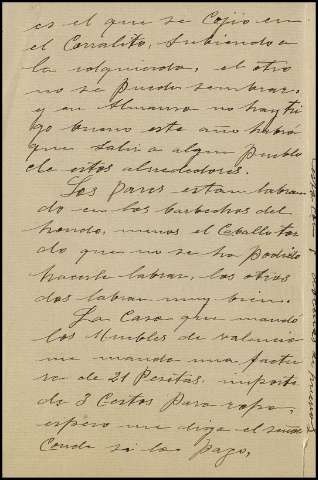 es el que se Cojio en
el Corralito, subiendo a
la izquierda, el otro
no se puede sembrar,
y en Almansa no hay tri
go bueno este año habrá
que salir a algun pueblo
de estos alrededores.
Los pares estan labran
do en los barbechos del
hondo, menos el Caballo tor
do que no se ha podido
hacerle labrar, los otros
dos labran muy bien.
La Casa que mandó
los Muebles de Valencia
me mando una factu
ra de 21 Pesetas, importe
de 3 Cestos para ropa,
espero me diga el señor
Conde si los pago,